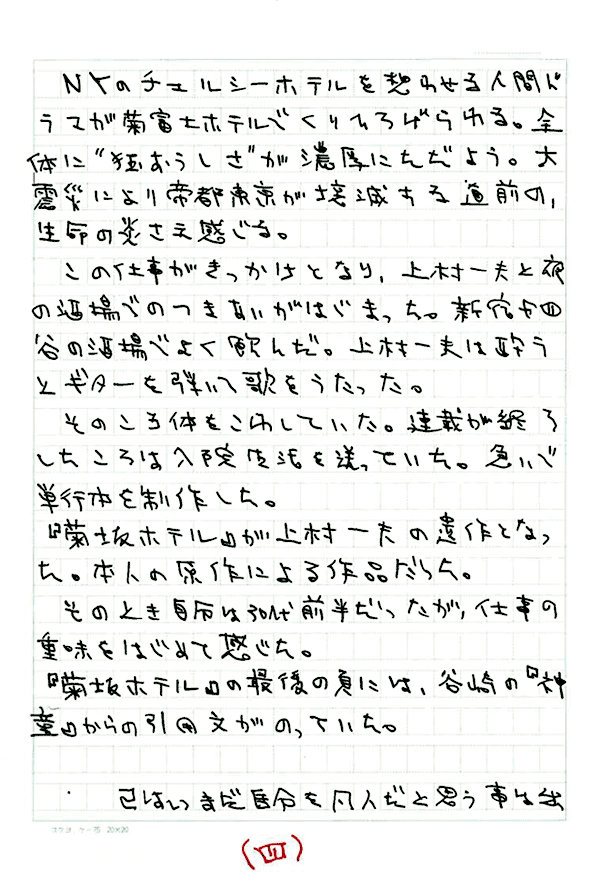 NYのチェルシーホテルを想わせる人間ド
ラマが菊富士ホテルでくりひろげられる。全
体に“狂おうしさ”が濃厚にただよう。大
震災により帝都東京が壊滅する直前の、
生命の炎さえ感じる。
この仕事がきっかけとなり、上村一夫と夜
の酒場でのつきあいがはじまった。新宿や四
谷の酒場でよく飲んだ。上村一夫は酔う
とギターを弾いて歌をうたった。
そのころ体をこわしていた。連載が終了
したころは入院生活を送っていた。急いで
単行本を制作した。
『菊坂ホテル』が上村一夫の遺作となっ
た。本人の原作による作品だった。
そのとき自分は30代前半だったが、仕事の
重味をはじめて感じた。
『菊坂ホテル』の最後の頁には、谷崎の『神
童』からの引用文がのっていた。
己はいまだ自分を凡人だと思う事は出
コクヨ ケー75 20×20
(四)